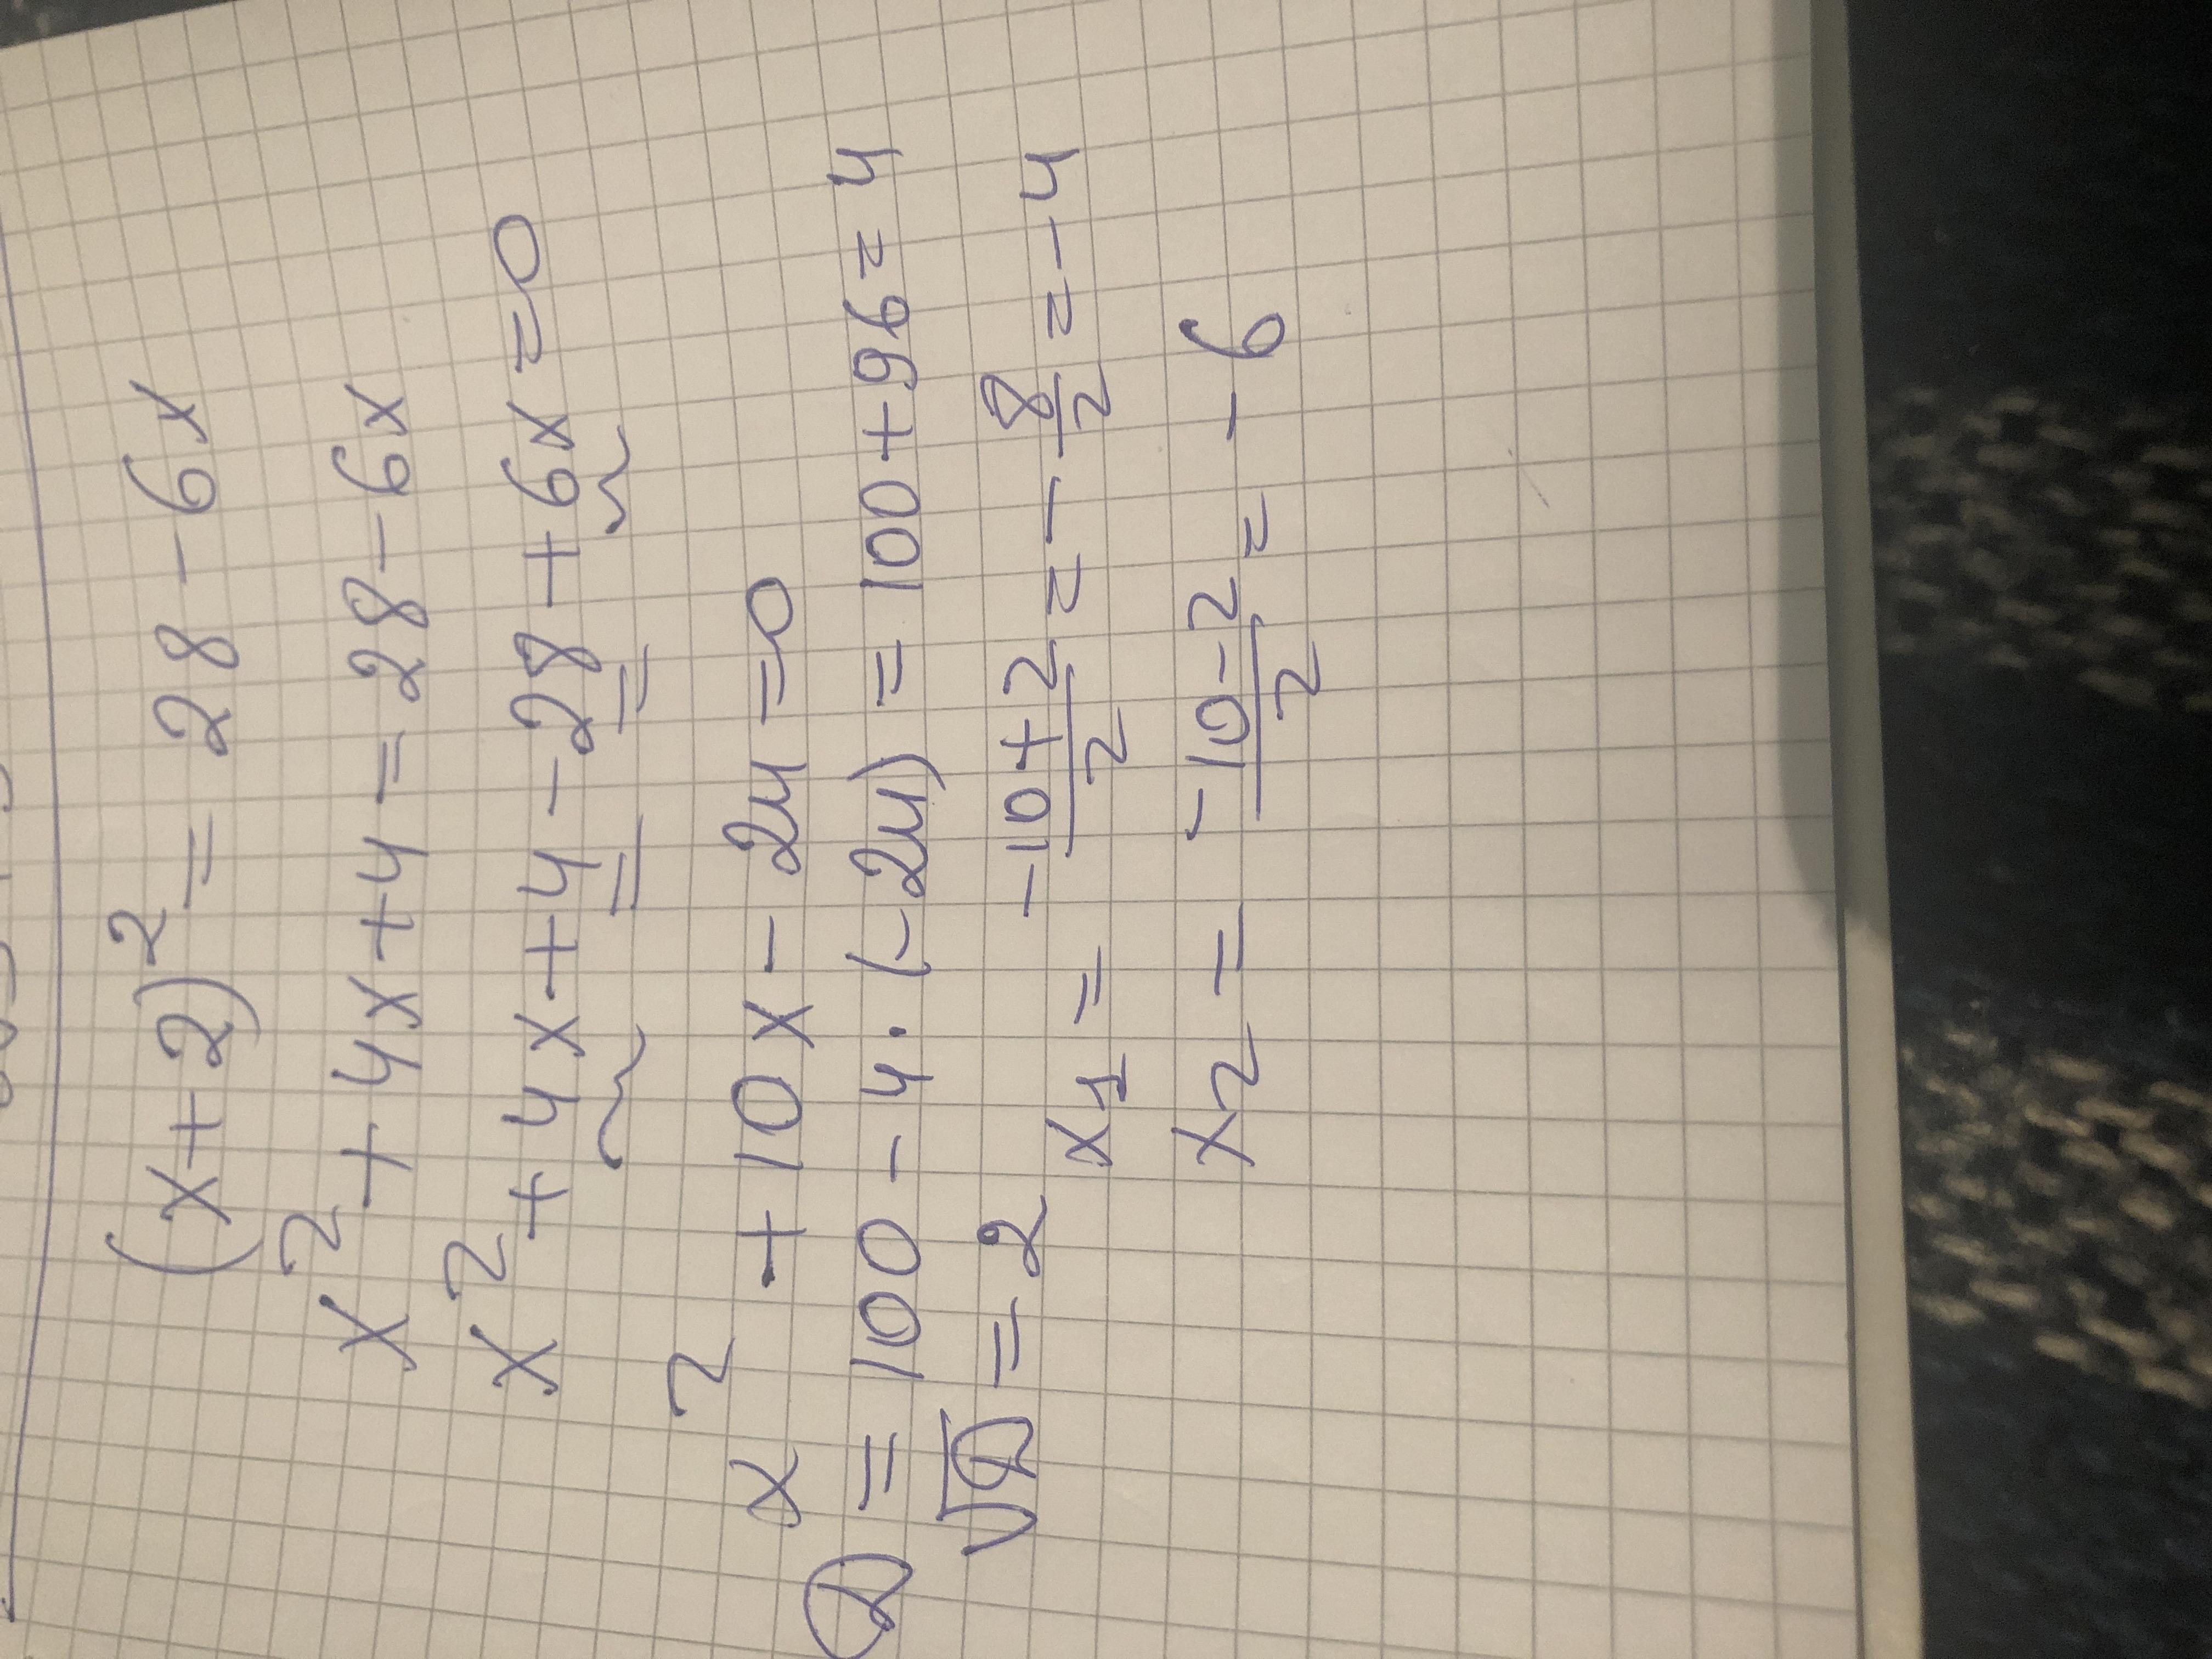 (x+2)² = 28 - 6x
x² + 4x + 4 = 28 - 6x
x² + 4x + 4 - 28 + 6x = 0
x² + 10x - 24 = 0
D = 100 - 4 · (-24) = 100 + 96 = 4
√D = 2 x₁ = -10+2/2 = - 8/2 = - 4
x₂ = -10-2/2 = - 6